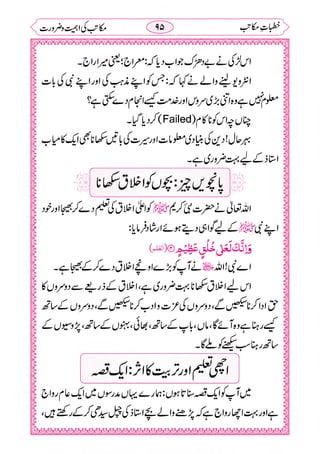 خطباتِ مکاتب ۹۵ مکاتب کی اہمیت وضرورت
اس لڑکی نے بے دھڑک جواب دیا کہ: معراج؛ یعنی: میرا راج۔
انٹرویو لینے والے نے کہا کہ: جس کو اپنے مذہب کی اور اپنے نبی کی بات
معلوم نہیں ہے وہ اتنی بڑی سروس اور خدمت کیسے انجام دے سکتی ہے؟
چناں چہ اس کو نا کام (Failed) کر دیا گیا۔
بہر حال! دین کی بنیادی معلومات اور تربیت کی باتیں سکھانا بھی ایک کامیاب
استاذ کے لیے بہت ضروری ہے۔
پانچویں چیز: بچوں کو اخلاق سکھانا
اللہ تعالیٰ نے حضرت نبیٔ کریم ﷺ کو اعلیٰ اخلاق کی تعلیم دے کر بھیجا اور خود
اپنے نبی ﷺ کے لیے گواہی دیتے ہوئے ارشاد فرمایا:
وَاِنَّکَ لَعَلٰی خُلُقٍ عَظِیْمٍ ۝ (القلم)
اے نبی! اللہ ﷻ نے آپ کو بڑے اونچے اخلاق دے کر کے بھیجا ہے۔
اس لیے اخلاق سکھانا بہت ضروری ہے، اخلاق کے ذریعے سے دوسروں کا
حق ادا کرنا سیکھیں گے، دوسروں کی عزت وادب کرنا سیکھیں گے، دوسروں کے ساتھ
کیسے رہنا ہے وہ آئے گا، ماں، باپ کے ساتھ، بھائی، بہنوں کے ساتھ، پڑوسیوں کے
ساتھ رہنا سہنا سیکھنے کو ملے گا۔
اچھی تعلیم اور تربیت کا اثر: ایک قصہ
میں آپ کو ایک قصہ سناتا ہوں: ہمارے یہاں مدرسوں میں ایک عام رواج
ہے اور بہت اچھا رواج ہے کہ پڑھنے والے بچے استاذ کی چپل سیدھی کر کے رکھتے ہیں،